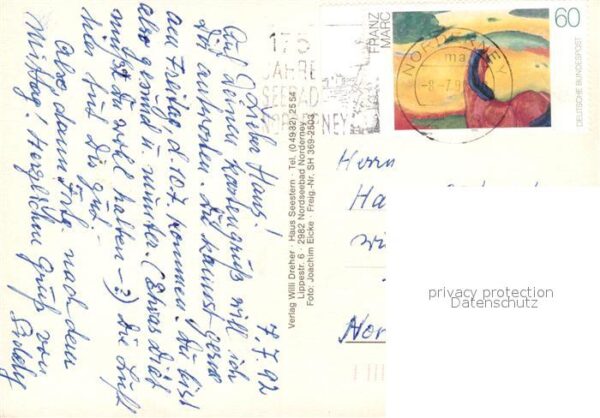 7.7.92
Lieber Hans!
Auf Deinen Kartengruß will ich
Dir antworten. Du kannst gerne
am Freitag d. 10.7 kommen. Du bist
also gesund u. munter. (Etwas Diät
mußt Du wohl halten - ?) Die Luft
hier tut Dir gut.
Also dann Frtg. nach dem
Mittag! Herzlichen Gruß von
Verlag Willi Dreher · Haus Seestern · Tel. (04932) 2554
Lippestr. 6 · 2982 Nordseebad Norderney
Foto: Joachim Eicke · Freig.-Nr. SH 369-2503
175
JAHRE
SEEBAD
NORDERNEY
FRANZ
MARC
60
DEUTSCHE BUNDESPOST
NORDERNEY
ma
-8.-7.9
Herrn
Ha
Nor
privacy protection
Datenschutz